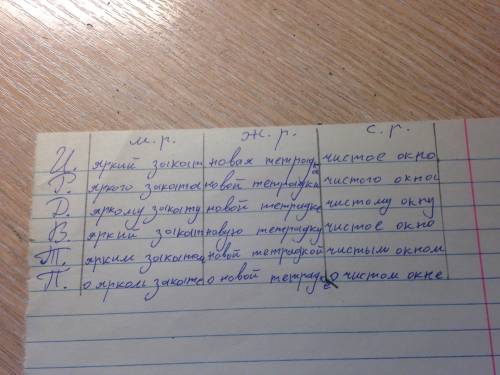 м.р. ж.р. с.р.
И. яркий закат новая тетрадка чистое окно
Р. яркого заката новой тетрадки чистого окна
Д. яркому закату новой тетрадке чистому окну
В. яркий закат новую тетрадку чистое окно
Т. ярким закатом новой тетрадкой чистым окном
П. о ярком закате о новой тетрадке о чистом окне